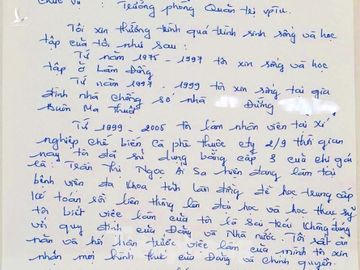 Chức vụ : Trưởng phòng Quản trị VPTU.
Tôi xin tường trình quá trình sinh sống và học
tập của tôi như sau :
Từ năm 1975 - 1997 tôi xin sống và học
tập ở Lâm Đồng
Từ năm 1997 - 1999 tôi xin sống tại gia
đình nhà chồng số nhà Đường
Buôn Ma Thuột
Từ 1999 - 2005 tôi làm nhân viên tại xí
nghiệp chế biến Cà phê thuộc cty 2/9 thời gian
này tôi đã sử dụng bằng cấp 3 của chị gái
là : Trần Thị Ngọc Ái Sa hiện đang làm tại
bệnh viện đa khoa tỉnh Lâm đồng để học trung cấp
kế toán rồi liên thông lên đại học và học thạc sỹ
tôi biết việc làm của tôi là sai trái không đúng
với quy định của Đảng và Nhà nước. Tôi rất ăn
năn và hối hận trước việc làm của mình tôi xin
nhận mọi hình thức của Đảng và chính quyền.